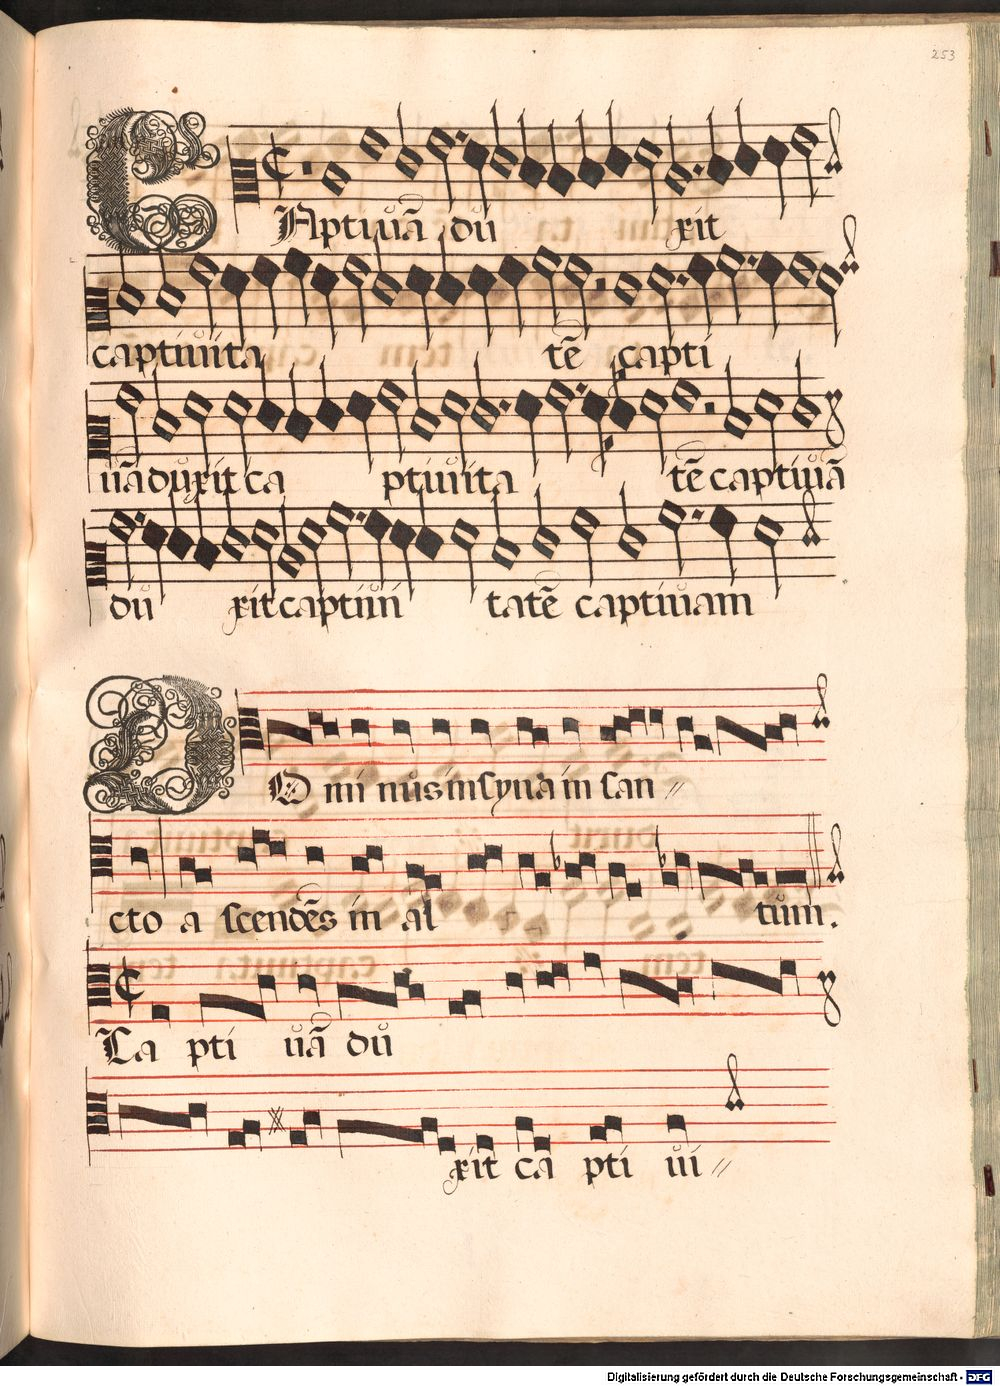 253
CAptiuã dũ xit
captiuita tẽ capti
uã dũxit ca ptiuita tẽ captiuã
dũ xit captiui tatẽ captiuam
DOminus in syna in san
cto ascendẽs in altum.
Capti uã dũ
xit captiui
Digitalisierung gefördert durch die Deutsche Forschungsgemeinschaft - DFG